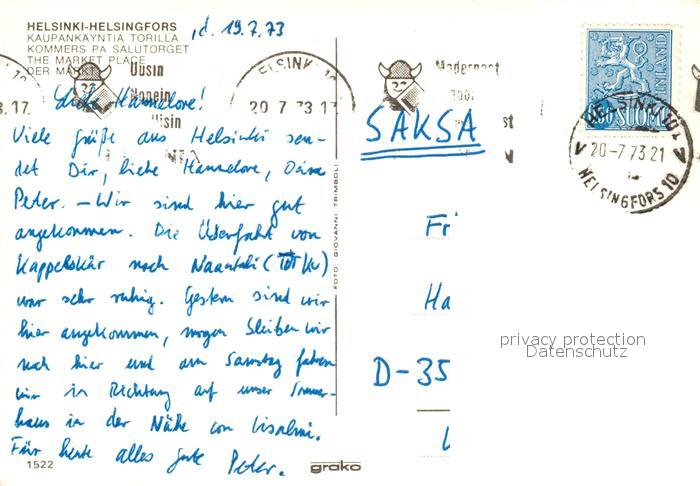 HELSINKI-HELSINGFORS
KAUPANKÄYNTIÄ TORILLA
KOMMERS PÅ SALUTORGET
THE MARKET PLACE
DER MAR
, d. 19.7.73
Uusin
Nopein
Liebe Hannelore!
Viele Grüße aus Helsinki sen-
det Dir, liebe Hannelore, Dein
Peter. – Wir sind hier gut
angekommen. Die Überfahrt von
Kappelskär nach Naantali
war sehr ruhig. Gestern sind wir
hier angekommen, morgen bleiben wir
noch hier und am Samstag fahren
wir in Richtung auf unser Sommer-
haus in der Nähe von Iisalmi.
Für heute alles gute Peter.
1522
grako
FOTO: GIOVANNI TRIMBOLI
HELSINKI 10
20 7 73 17
8.17
Modernast
SAKSA
Fr
Ha
D-35
SUOMI FINLAND
HELSINKI 10
20-7 73 21
HELSINGFORS 10
privacy protection
Datenschutz